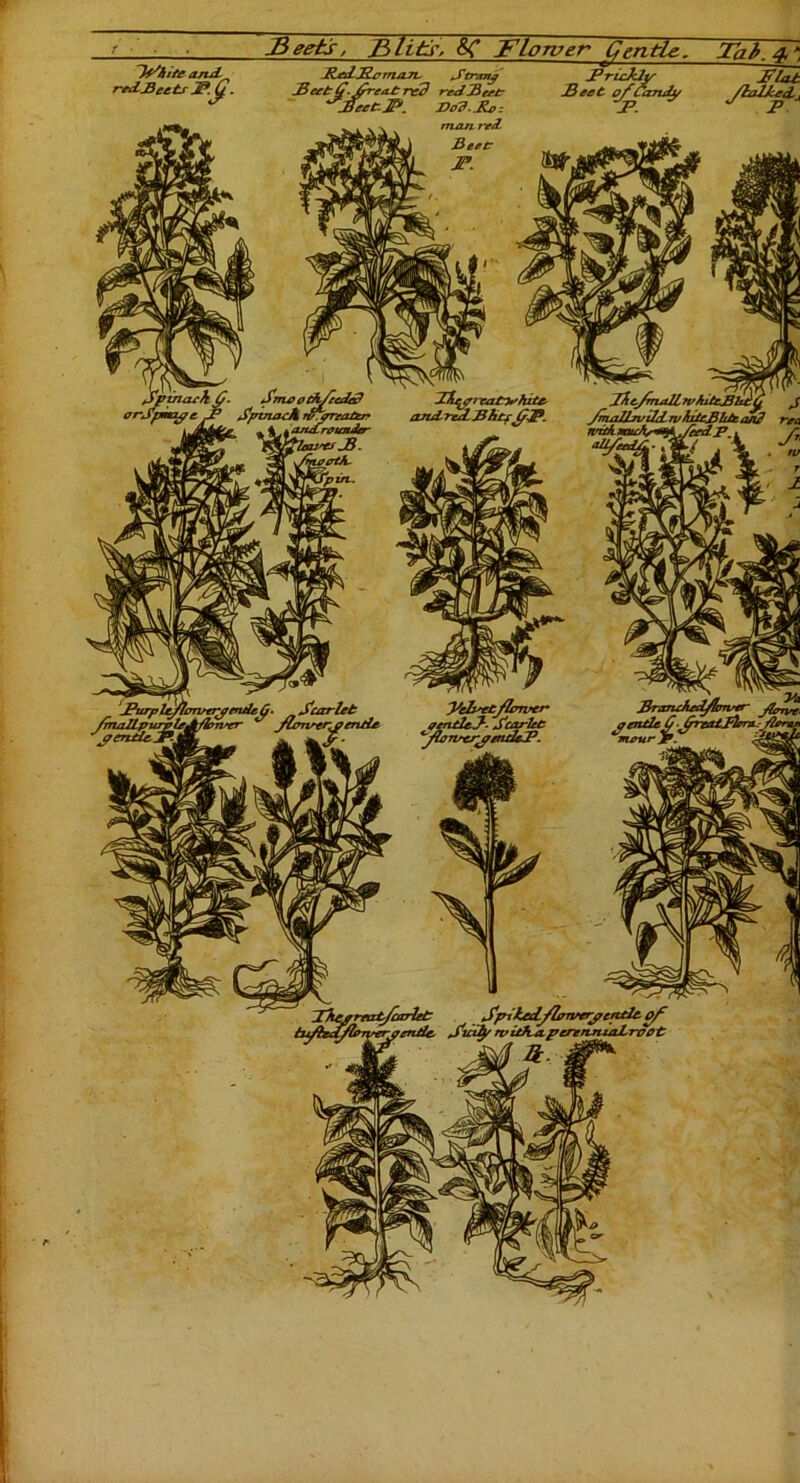 Beets, Blits, & Flower Gentle. Tab. 4
White and
red Beets P. G.
Red Roman
Beet G. great red
Beet P.
Strang
red Beet
Dod. Ro:
man red
Beet
P.
Prickly
Beet of Candy
P.
Flat
stalked
P
Spinach G.
or Spinage P
Smooth seeded
Spinach wth greater
and rounder
leaves B.
smooth
Spin.
The great white
and red Blits G. P.
The small white Blit G
small wild white Blite and
with much seed P.
all seed G.
Purple flower gentle G.
small purple flower
gentle P.
Scarlet
flower gentle
G.
Velvet flower
gentle J. Scarlet
flower gentle P.
Branched flower
gentle G. great Flora:
mour P.
The great scarlet
tufted flower gentle
Spiked flower gentle of
Sicily with a perennial root
R.